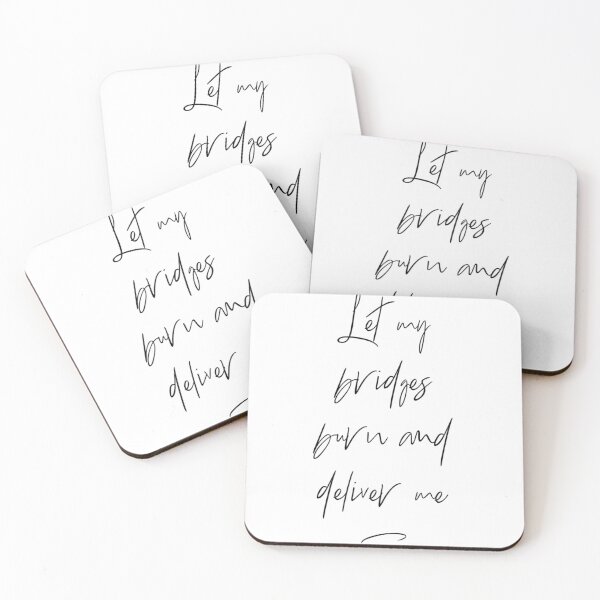 Let my
bridges
Let my
bridges
burn and
Let my
bridges
burn and
deliver
Let my
bridges
burn and
deliver me